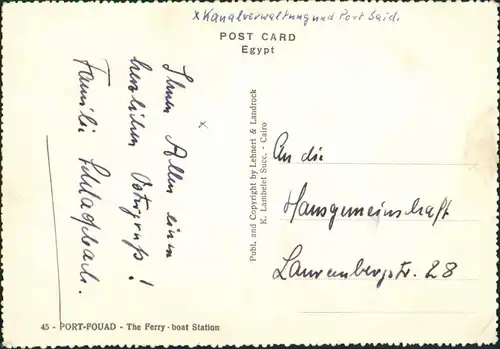 x Kanalverwaltung und Port Said.
POST CARD
Egypt
x
Ihnen Allen einen
herzlichen Ostergruß!
Familie
Publ. and Copyright by Lehnert & Landrock
K. Lambelet Succ. - Cairo
An die
Hausgemeinschaft
Laurenbergstr. 28
45 - PORT-FOUAD - The Ferry-boat Station